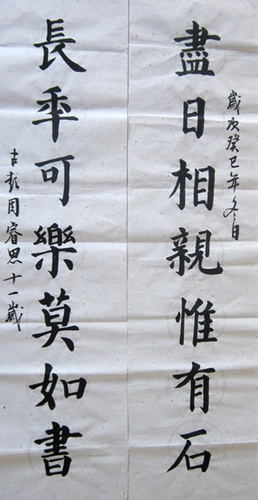 歲次癸巳年冬月
盡日相親惟有石
長秊可樂莫如書
古彭周睿思十一歲